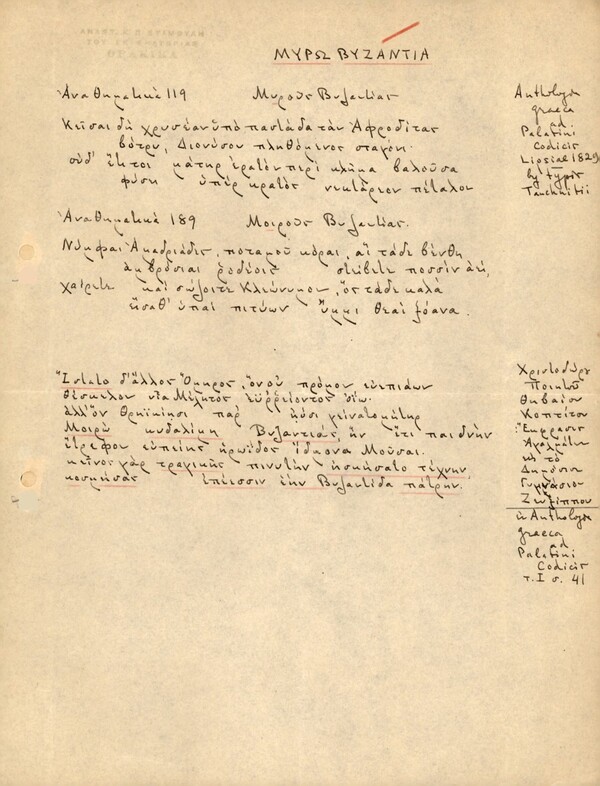 ΜΥΡΩ ΒΥΖΑΝΤΙΑ
Ἀναθηματικὰ 119 Μυροῦς Βυζαντίας
Κεῖσαι δὴ χρυσέαν ὑπὸ παστάδα τὰν Ἀφροδίτας
βότρυ, Διονύσου πληθόμενος σταγόνι·
οὐδ' ἔτι τοι μάτηρ ἐρατὸν περὶ κλῆμα βαλοῦσα
φύσει ὑπὲρ κρατὸς νεκτάρεον πέταλον
Anthologia
graeca
ad
Palatini
Codicis
Lipsiae 1829
by typis
Tauchnitii
Ἀναθηματικὰ 189 Μοιροῦς Βυζαντίας.
Νύμφαι Ἁμαδρυάδες, ποταμοῦ κόραι, αἳ τάδε βένθη
ἀμβρόσιαι ῥοδέοις στείβετε ποσσὶν ἀεί,
χαίρετε καὶ σώζοιτε Κλεώνυμον, ὃς τάδε καλὰ
εἵσαθ' ὑπαὶ πιτύων ὔμμι θεαὶ ξόανα.
Ἵστατο δ' ἄλλος Ὅμηρος, ὃν οὐ πρόμον εὐεπιάων
θέσκελον υἷα Μέλητος ἐϋρρείοντος ὀίω·
ἀλλ' ὃν Θρηϊκίῃσι παρ' ᾐόσι γείνατο μήτηρ
Μοιρὼ κυδαλίμη Βυζαντιάς, ἣν ἔτι παιδνὴν
ἔτρεφον εὐεπίης ἡρωΐδος ἴδμονα Μοῦσαι.
κεῖνος γὰρ τραγικῆς πινυτὴν ἠσκήσατο τέχνην
κοσμήσας ἐπέεσσιν ἑὴν Βυζαντίδα πάτρην.
Χριστοδώρου
Ποιητοῦ
Θηβαίου
Κοπτίτου
Ἔκφρασις
Ἀγαλμάτων
εἰς τὸ
Δημόσιον
Γυμνάσιον
Ζευξίππου
ἐκ Anthologia
graeca
ad
Palatini
Codicis
τ. I σ. 41